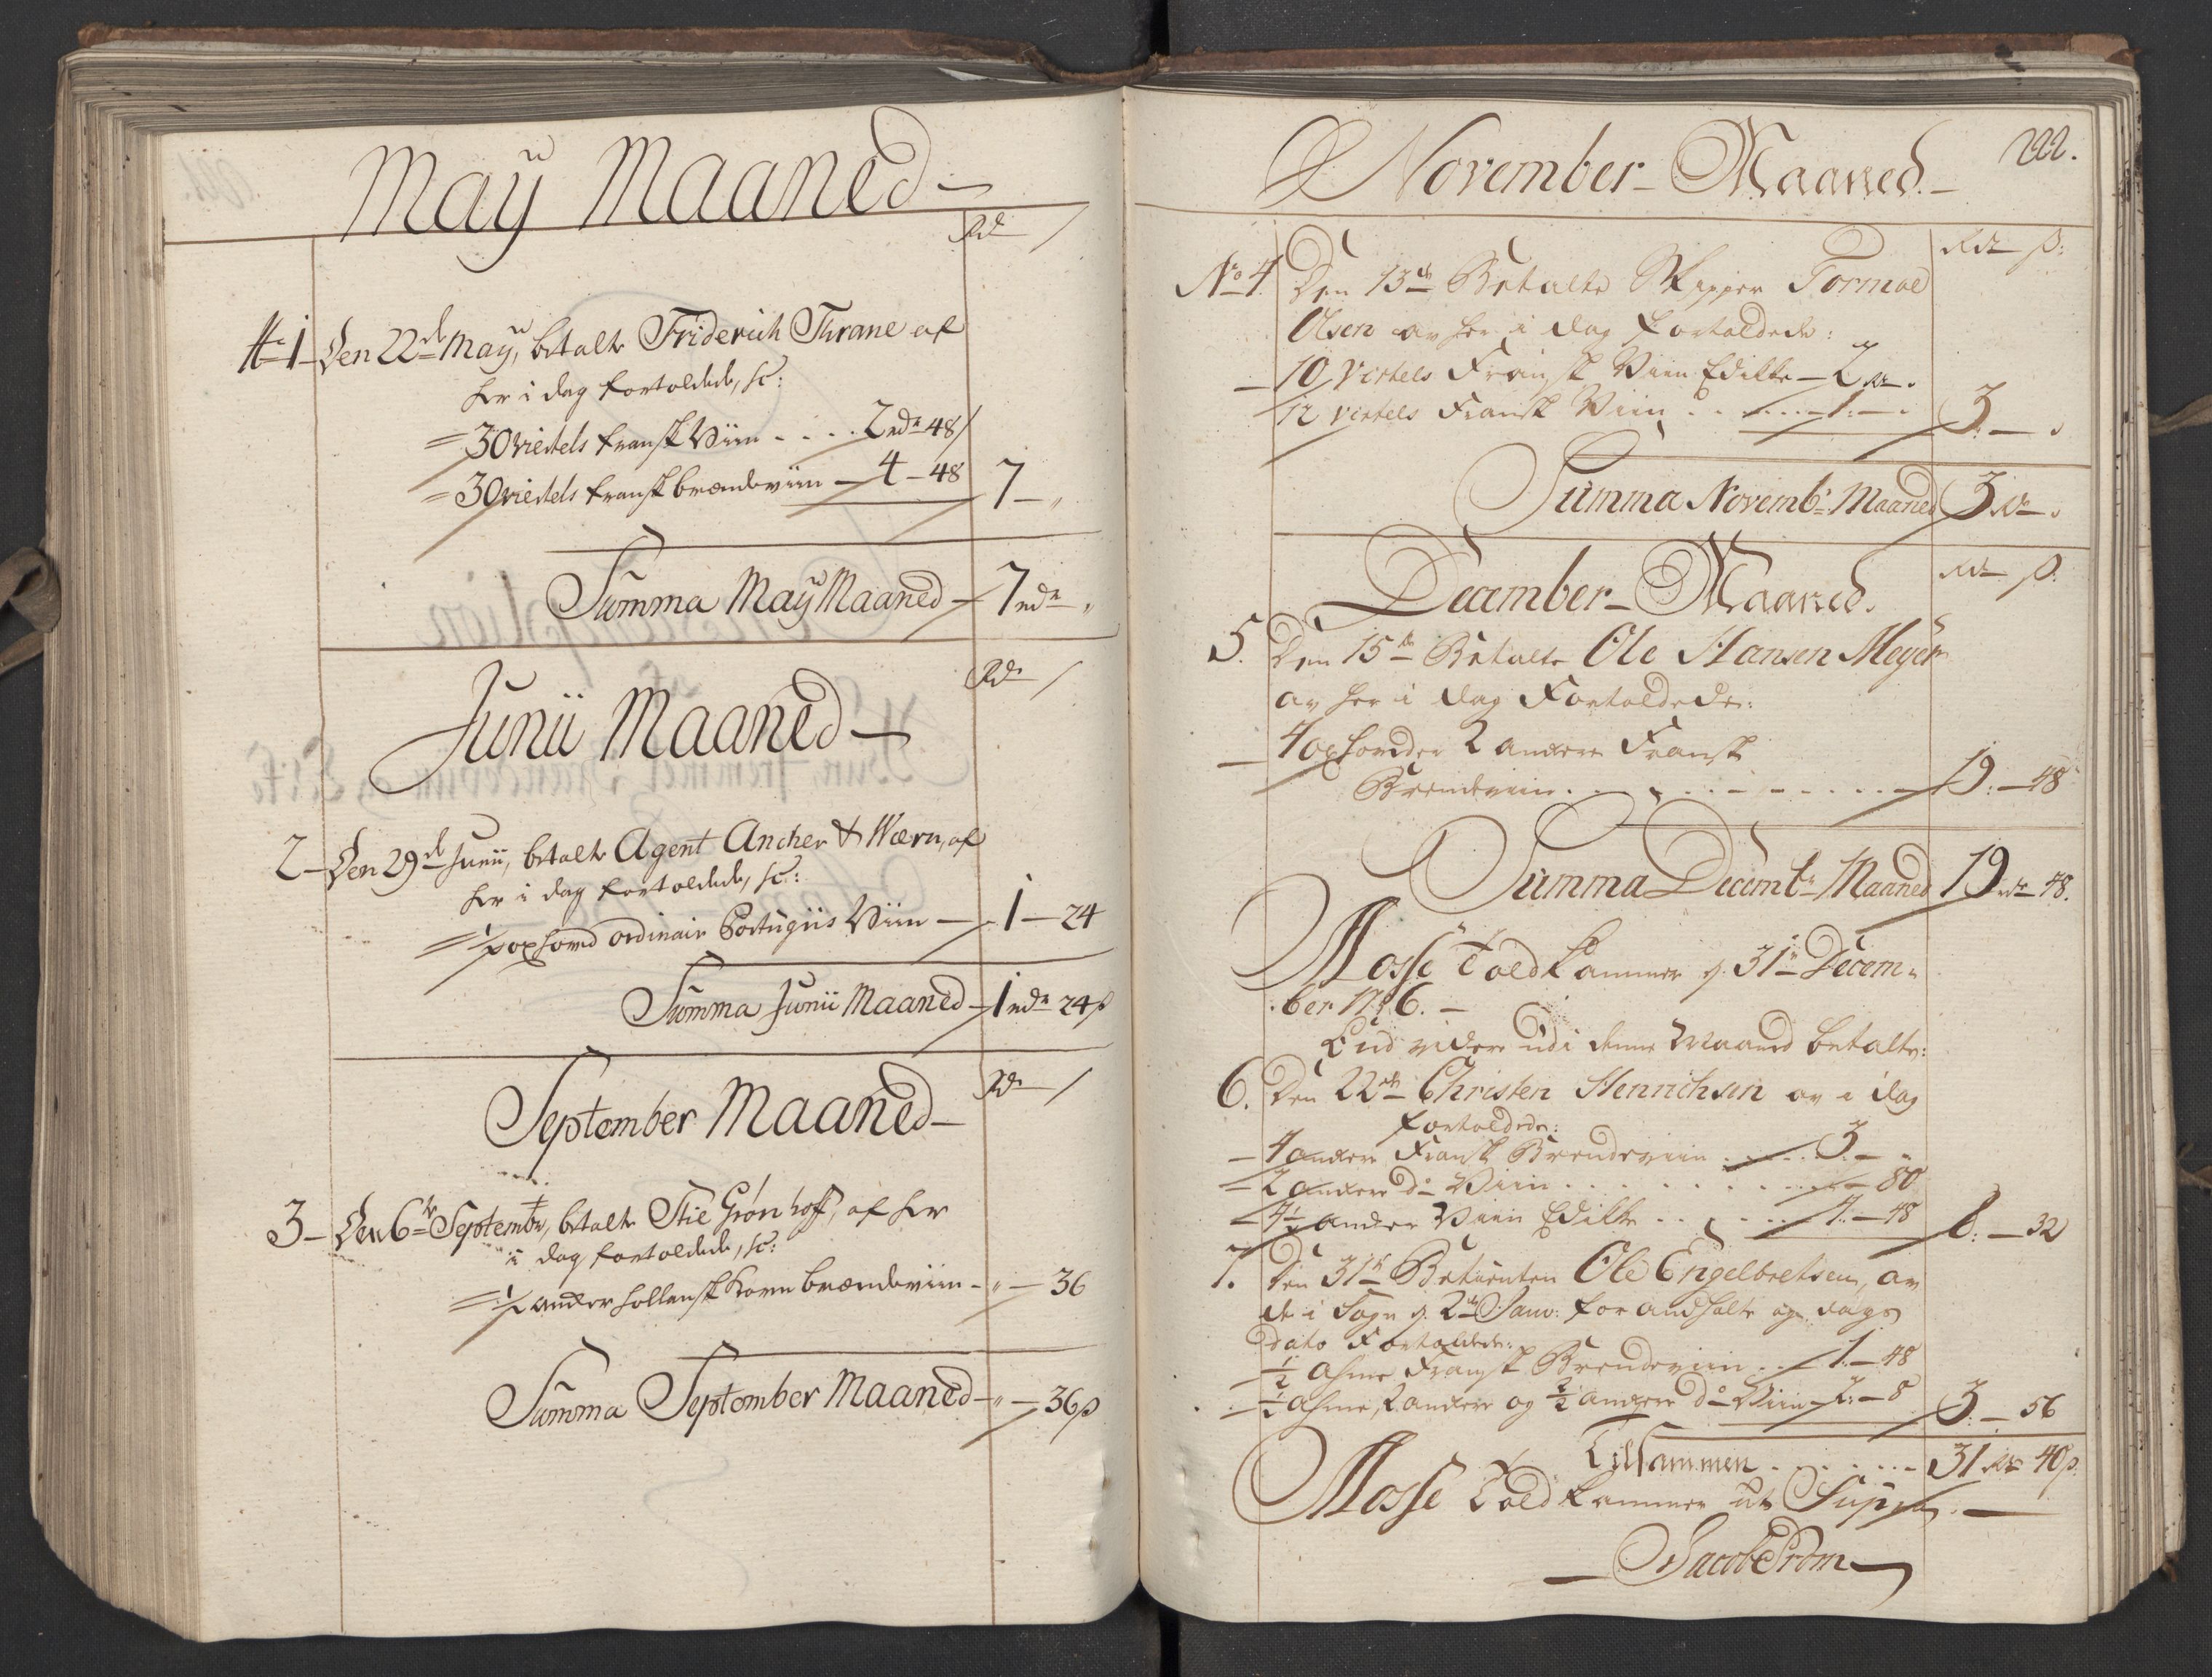 May Maaned
Rdr ß
No 1 Den 22de May, betalte Friderich Thrane af
her i dag fortoldede, sc:
30 viertels fransk Viin - - - - 2 rdr 48 ß
30 viertels fransk brændeviin - 4 - 48 7 - "
Summa May Maaned - 7 rdr "
Rdr ß
Junii Maaned
2 - Den 29de Junii, betalte Agent Ancher & Wærn, af
her i dag fortoldede, sc:
1/2 oxhovd ordinair Portugiis Viin - 1 - 24
Summa Junii Maaned - 1 rdr 24 ß
Rdr ß
September Maaned
3 - Den 6te Septembr, betalte Stie Grønhoff, af her
i dag fortoldede, sc:
1/2 ancker hollansk Korn brændeviin - " - 36
Summa September Maaned - " - 36 ß
222.
November Maaned.
Rdr ß:
No 4. Den 13de Betalte Skipper Tormoe
Olsen av her i dag fortoldede:
10 viertels Fransk Viin Edikke - 2 rdr
12 viertels Fransk Viin . . . . - 1. - . 3. - "
Summa Novembr Maaned 3 rdr "
December Maaned.
Rdr ß.
5. Den 15de Betalte Ole Hansen Meyer
av her i dag Fortoldede:
4 oxhovder 2 ancker Fransk
Brendeviin . . . . . . 19. - 48
Summa Decembr Maaned 19 rdr 48.
Mosse Told Kammer d. 31te Decem-
ber 1786. -
End videre udi denne Maaned betalte:
6. Den 22de Christen Henrichsen av i dag
fortoldede:
4 ancker Fransk Brendeviin . . . . 3. - "
2 ancker do Viin . . . . . . - 80
4 1/2 ancker Viin Edikke . . . . 4. - 48 8. - 32
7. Den 31te Betienten Ole Engelbretsen, av
de i Sage d. 2de Janv: for andholte og dags
Dato Fortoldede:
1/2 ahme Fransk Brendeviin . . 1. - 48
1/2 ahme, 2 ancker og 1/2 ancker do Viin - 2. - 8 3. - 56
Tilsammen . . . . . 31 rdr 40 ß.
Mosse Told Kammer ut Supra. -
Jacob Prom